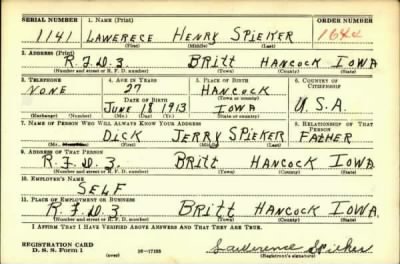 SERIAL NUMBER 1. NAME (Print) ORDER NUMBER
1141 LAWERECE HENRY SPIEKER 1644
(First) (Middle) (Last)
2. ADDRESS (Print)
R.F.D.3. BRITT HANCOCK IOWA
(Number and street or R. F. D. number) (Town) (County) (State)
3. TELEPHONE 4. AGE IN YEARS 5. PLACE OF BIRTH 6. COUNTRY OF CITIZENSHIP
NONE 27 HANCOCK
DATE OF BIRTH (Town or county)
JUNE 18 1913 IOWA U.S.A.
(Exchange) (Number) (Mo.) (Day) (Yr.) (State or country)
7. NAME OF PERSON WHO WILL ALWAYS KNOW YOUR ADDRESS 8. RELATIONSHIP OF THAT PERSON
DICK JERRY SPIEKER FATHER
(First) (Middle) (Last)
9. ADDRESS OF THAT PERSON
R.F.D.3. BRITT HANCOCK IOWA
(Number and street or R. F. D. number) (Town) (County) (State)
10. EMPLOYER'S NAME
SELF
11. PLACE OF EMPLOYMENT OR BUSINESS
R.F.D.3 BRITT HANCOCK IOWA.
(Number and street or R. F. D. number) (Town) (County) (State)
I AFFIRM THAT I HAVE VERIFIED ABOVE ANSWERS AND THAT THEY ARE TRUE.
REGISTRATION CARD
D. S. S. Form 1 (over) 16—17105 Lawerence Spieker
(Registrant's signature)